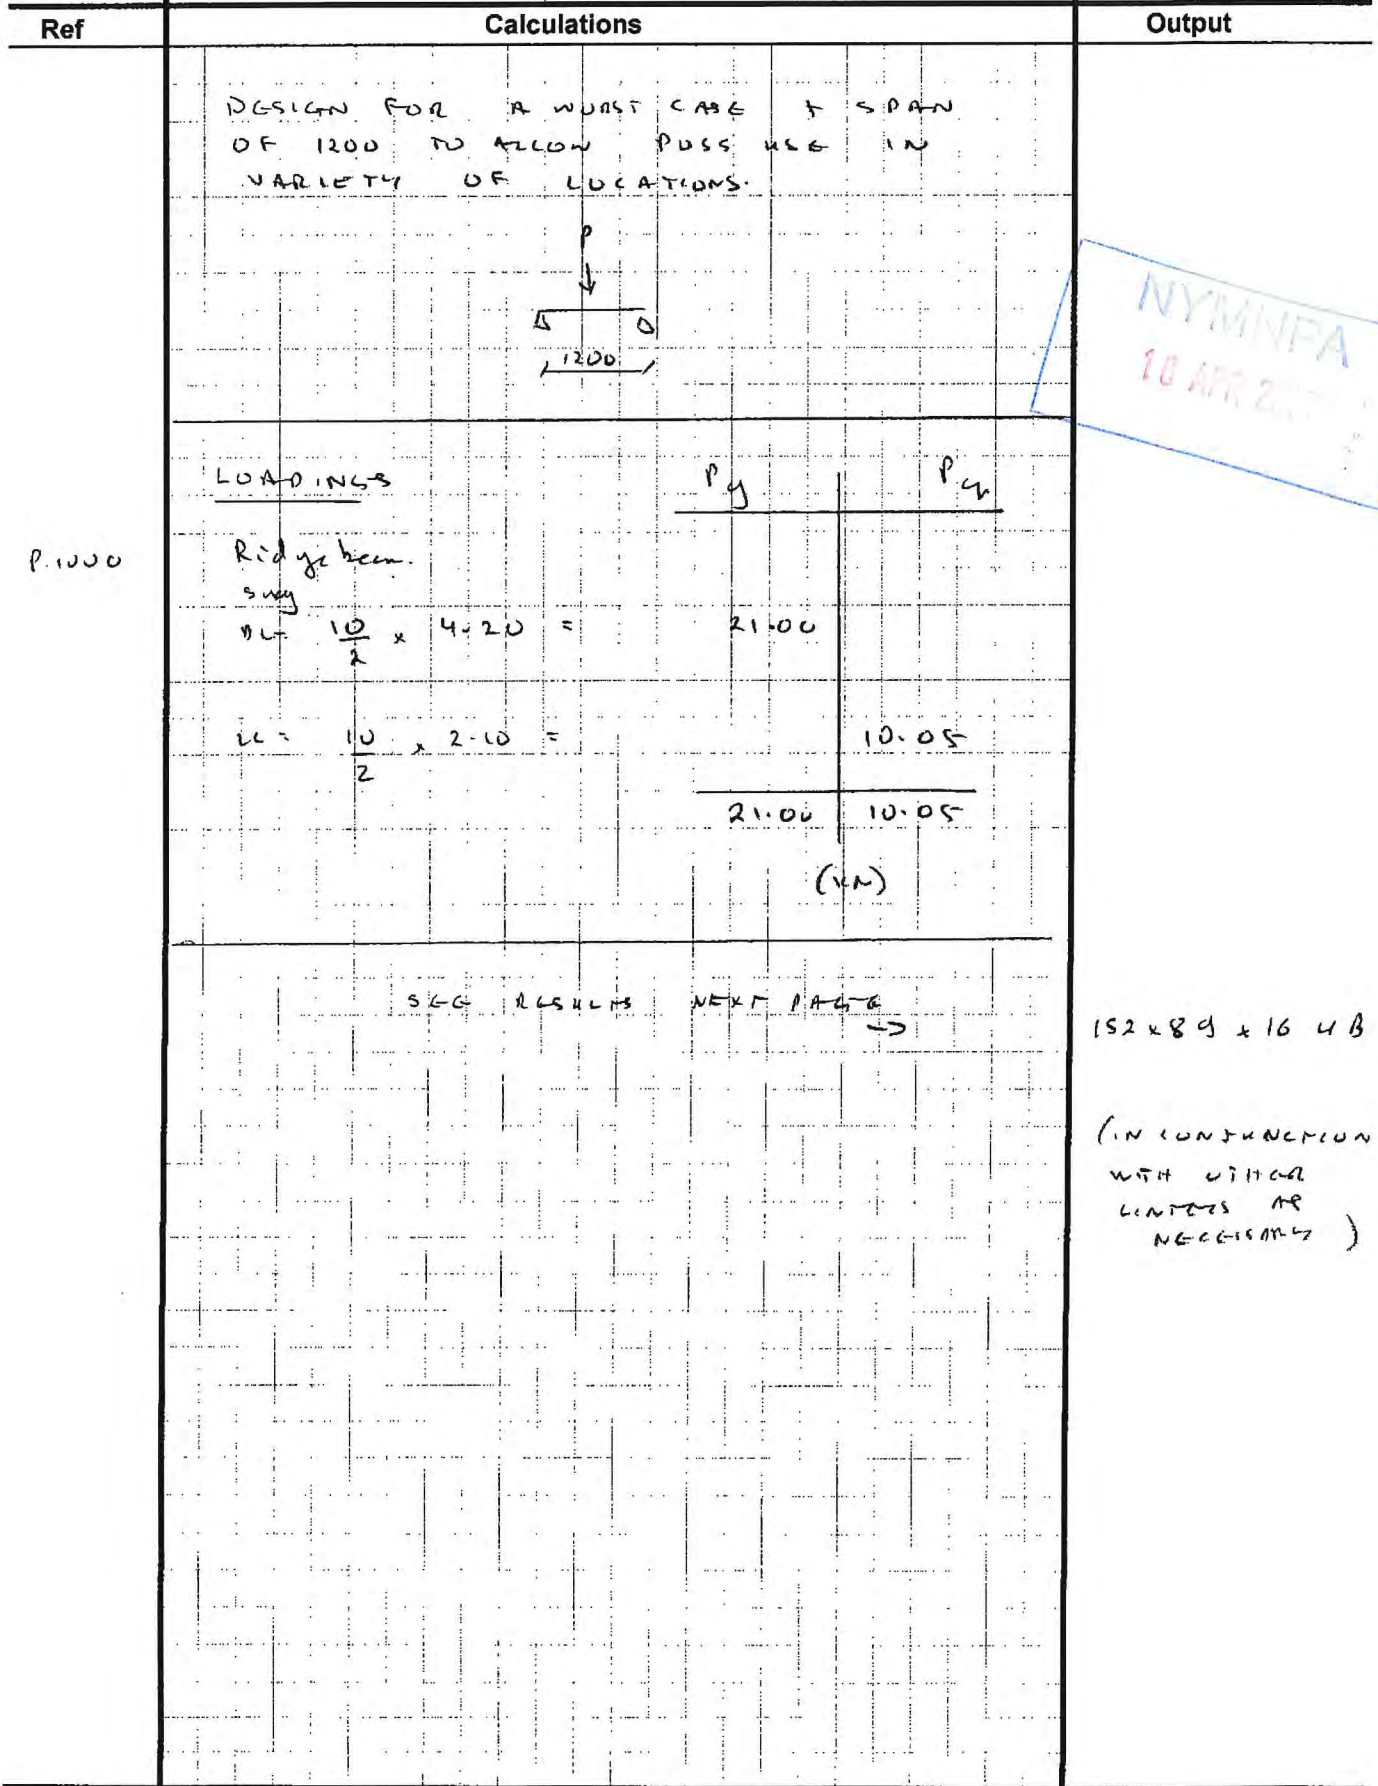 Ref
Calculations
Output
DESIGN FOR A WORST CASE + SPAN
OF 1200 TO ALLOW POSS USE IN
VARIETY OF LOCATIONS.
P
1200
NYMNPA
10 APR
LOADINGS
Pg
Pq
P.1000
Ridge beam.
say
DL = 10/2 x 4.20 =
21.00
LL = 10/2 x 2.10 =
10.05
21.00 10.05
(kN)
SEE RESULTS NEXT PAGE →
152 x 89 x 16 UB
(IN CONJUNCTION
WITH OTHER
LINTELS AS
NECESSARY)